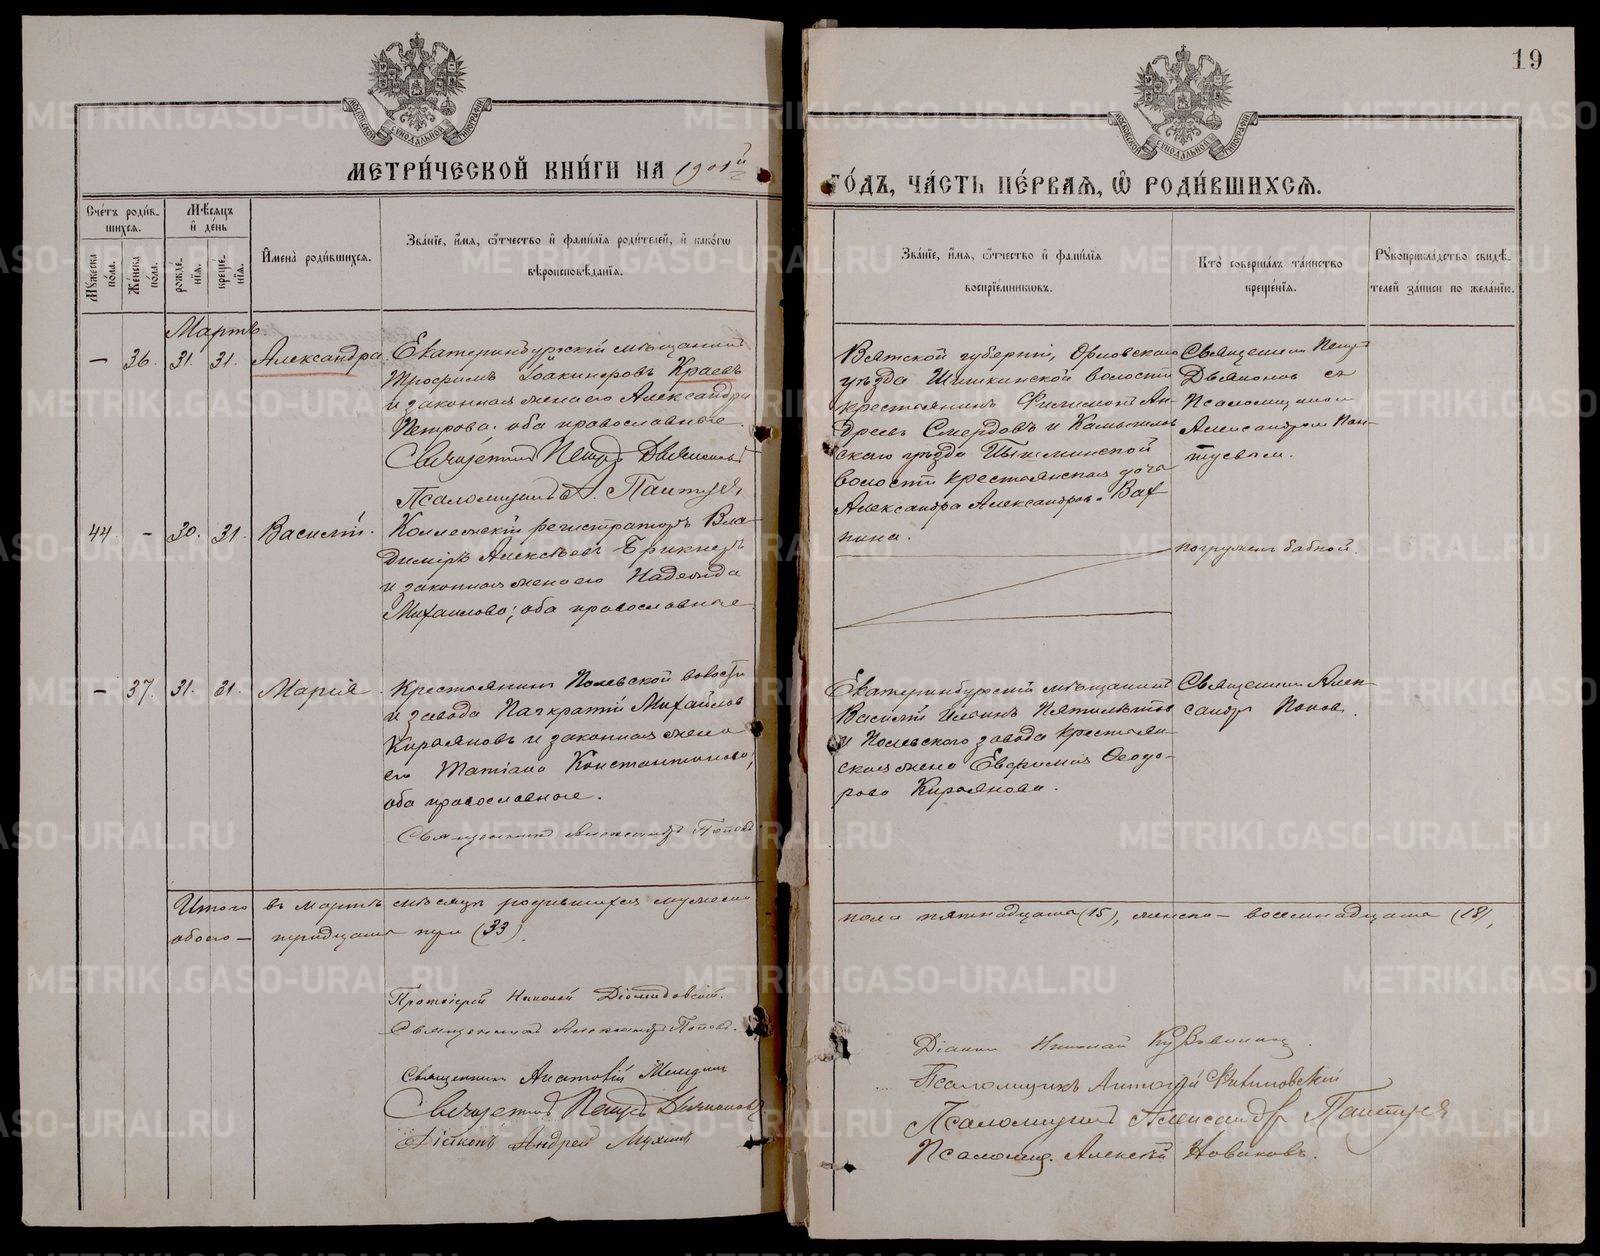 19
МЕТРИ́ЧЕСКОЙ КНИ́ГИ НА 1901й
ГО́ДЪ, ЧА́СТЬ ПЕ́РВАѦ, Ѡ҆ РОДИ́ВШИХСѦ.
Сче́тъ роди́в-
шихсѧ.
Мѣ́сѧцъ
и҆ де́нь
Мꙋ́жеска
по́ла.
Же́нска
по́ла.
рожде́-
нїѧ.
креще́-
нїѧ.
И҆мена̀ роди́вшихсѧ.
Зва́нїе, и҆́мѧ, ѻ҆́тчество и҆ фамѵ́лїѧ роди́телей, и҆ како́гѡ
вѣроисповѣ́данїѧ.
Зва́нїе, и҆́мѧ, ѻ҆́тчество и҆ фамѵ́лїѧ
воспрїе́мникѡвъ.
Кто̀ соверша́лъ та́инство
креще́нїѧ.
Рꙋкоприкла́дство свидѣ́-
телей за́писи по жела́нїю.
Мартъ
— 36. 31. 31. Александра.
Екатеринбургскій мѣщанинъ
Трофимъ Іоакимовъ Краевъ
и законная жена его Александра
Петрова. оба православные.
Священникъ Петръ Дьяконовъ
Псаломщикъ А. Пантуев
Вятской губерніи, Орловскаго
уѣзда Шишкинской волости
крестьянинъ Филимонъ Ан-
дреевъ Смердовъ и Камышлов-
скаго уѣзда Пышминской
волости крестьянская дочь
Александра Александрова Вах-
нина.
Священник Петръ
Дьяконов съ
Псаломщиком
Александром Пан-
туевым.
44. - 30. 31. Василій.
Коллежскій регистраторъ Вла-
диміръ Алексѣевъ Брикнеръ
и законная жена его Надежда
Михаилова; оба православные
погружен бабкой.
— 37. 31. 31. Марія.
Крестьянинъ Полевской волости
и завода Панкратій Михайлов
Кирьяновъ и законная жена
его Татіана Константинова,
оба православные.
Священникъ Александръ Поповъ
Екатеринбургскій мѣщанинъ
Василій Ильинъ Пятилѣтов
и Полевскаго завода крестьян-
ская жена Евфимія Ѳеодо-
рова Кирьянова.
Священник Алек-
сандр Попов.
Итого въ мартѣ мѣсяцѣ родившихся мужеска
пола пятнадцать (15), женска — восемнадцать (18),
обоего — тридцать три (33).
Протоіерей Николай Діомидовскій.
Священникъ Александръ Поповъ.
Священникъ
Священникъ Петръ Дьяконовъ
Діаконъ Андрей Мухинъ
Діакон Николай
Псаломщикъ
Псаломщикъ Александръ Пантуев
Псаломщ. Алексѣй Новиковъ.
METRIKI.GASO-URAL.RU